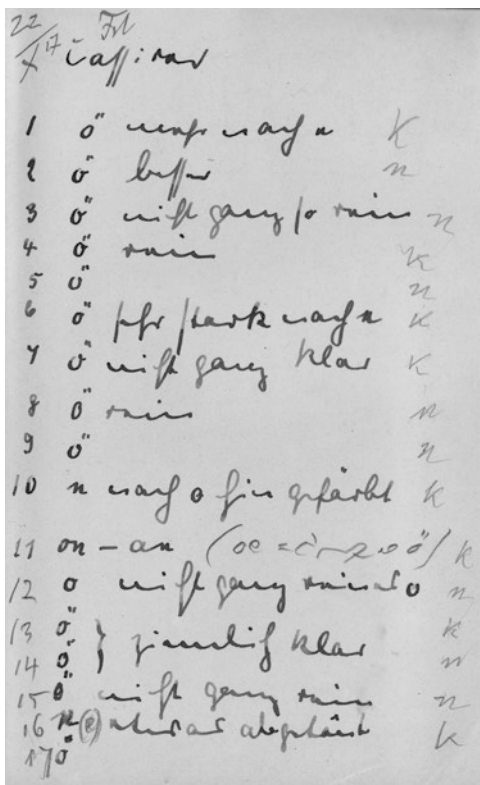 22/X 17 Frl Cassirer
1 ö mehr nach u K
2 ö besser n
3 ö nicht ganz so rein n
4 ö rein K
5 ö n
6 ö sehr stark nach K
7 ö nicht ganz klar K
8 ö rein n
9 ö n
10 nach o hin gefärbt K
11 on – an K
12 o nicht ganz rein o n
13 ö } ziemlich klar K
14 ö n
15 ö nicht ganz rein n
16 (e) etwas K
17 ö